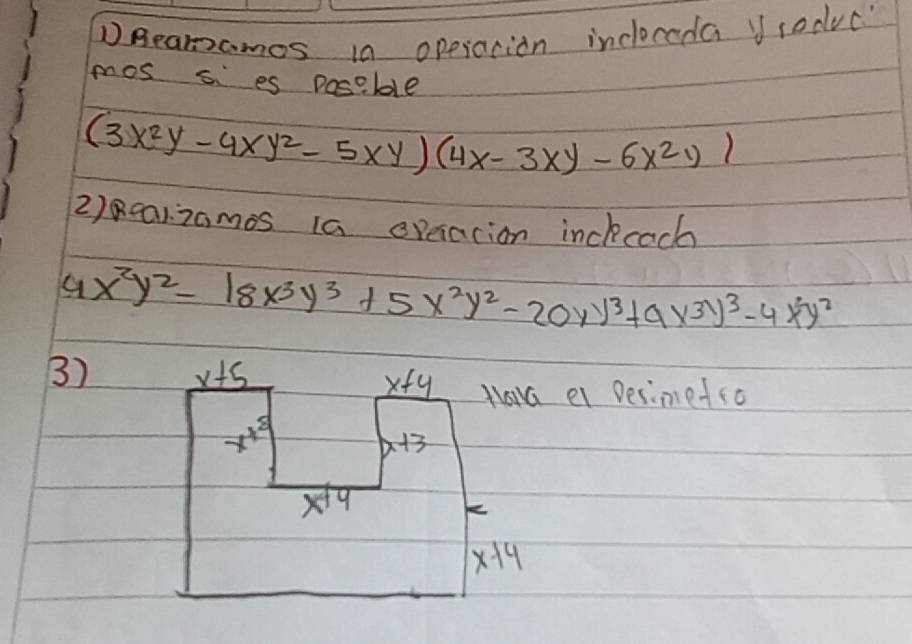 1) Realizamos la operación indicada y reduci
mos si es posible
(3x²y - 4xy² - 5xy)(4x - 3xy - 6x²y)
2) Realizamos la operacion indicada
4x²y² - 18x³y³ + 5x²y² - 20xy³ + 9x³y³ - 4x²y²
3)
x+5 x+4 Hala el Perimetro
x+3 x+3
x+4
x+4